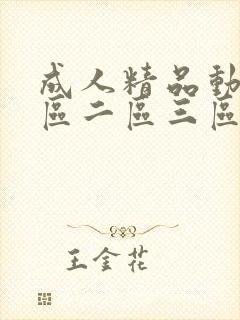 成人精品動
區二區三區
王金花